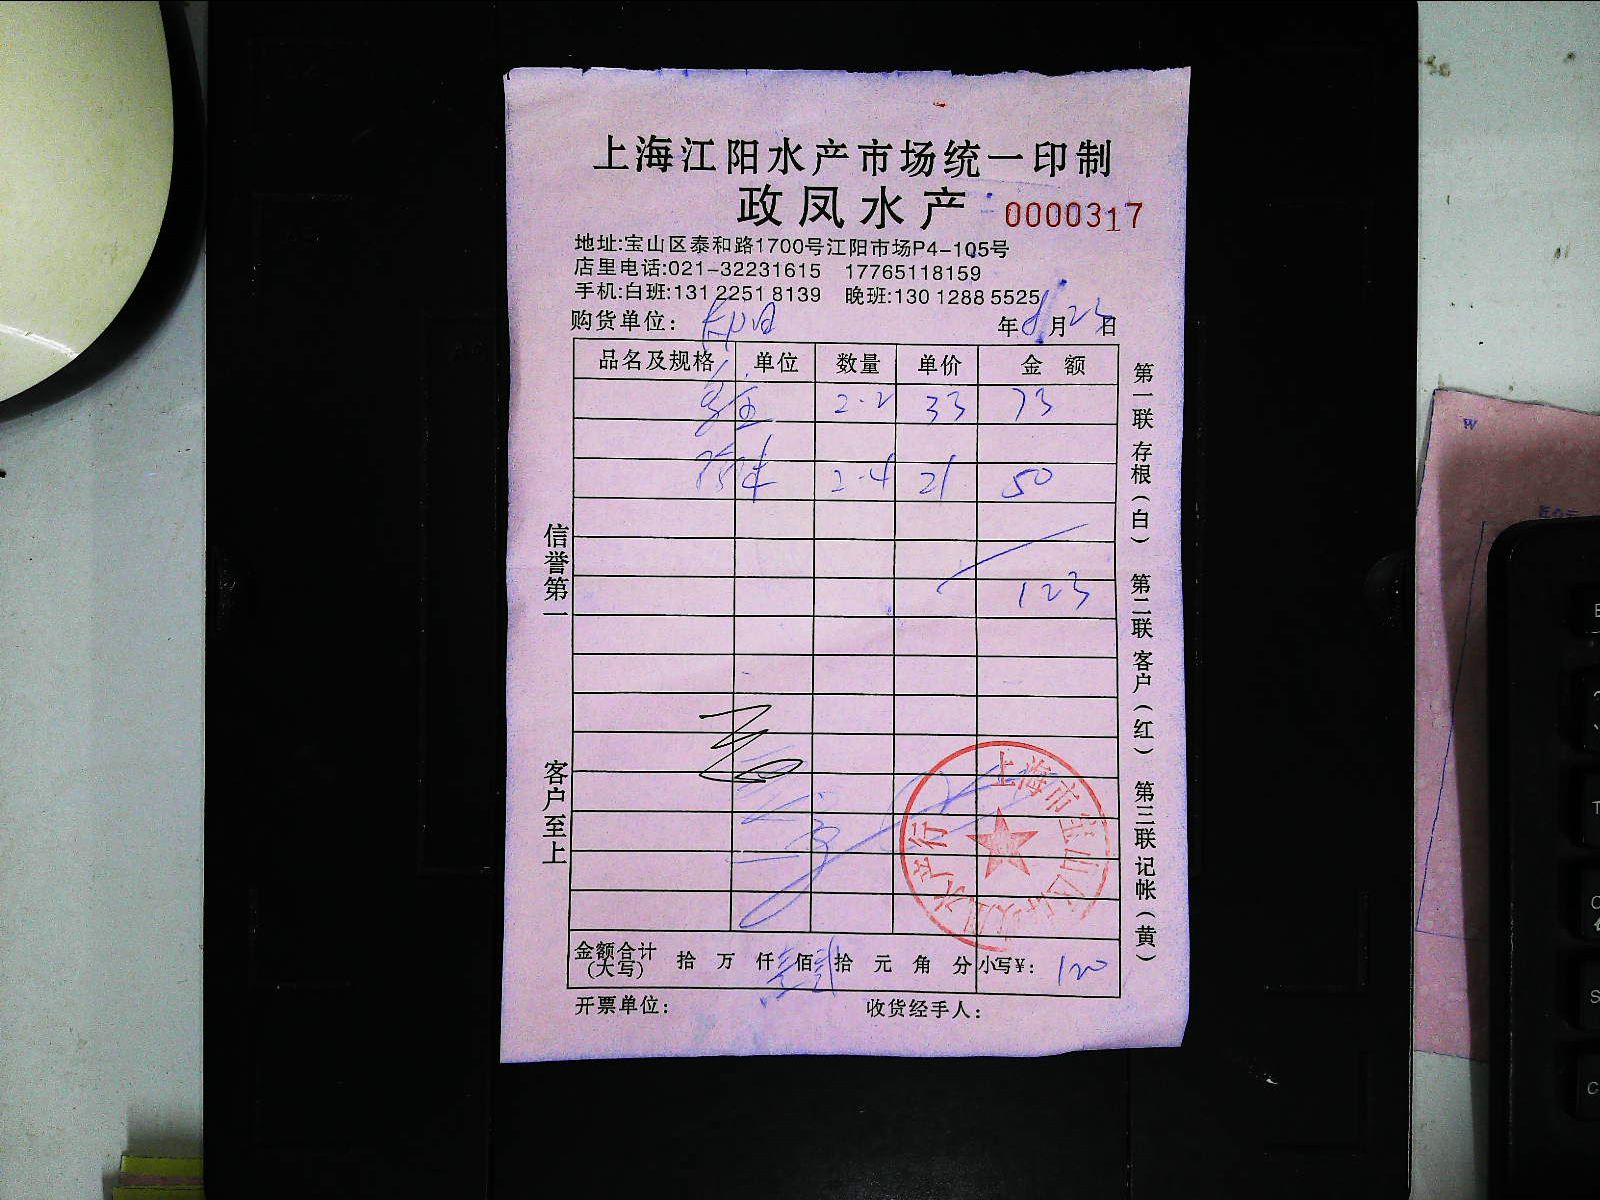 上海江阳水产市场统一印制
政凤水产 0000317
地址:宝山区泰和路1700号江阳市场P4-105号
店里电话:021-32231615 17765118159
手机:白班:131 2251 8139 晚班:130 1288 5525
购货单位: 年 月 23 日
品名及规格 单位 数量 单价 金额
2.2 33 73
2.4 21 50
123
信誉第一
客户至上
第一联存根(白) 第二联客户(红) 第三联记帐(黄)
上海市宝山区 水产行
金额合计(大写) 拾 万 仟 壹 佰 贰 拾 元 角 分 小写¥: 120
开票单位: 收货经手人: